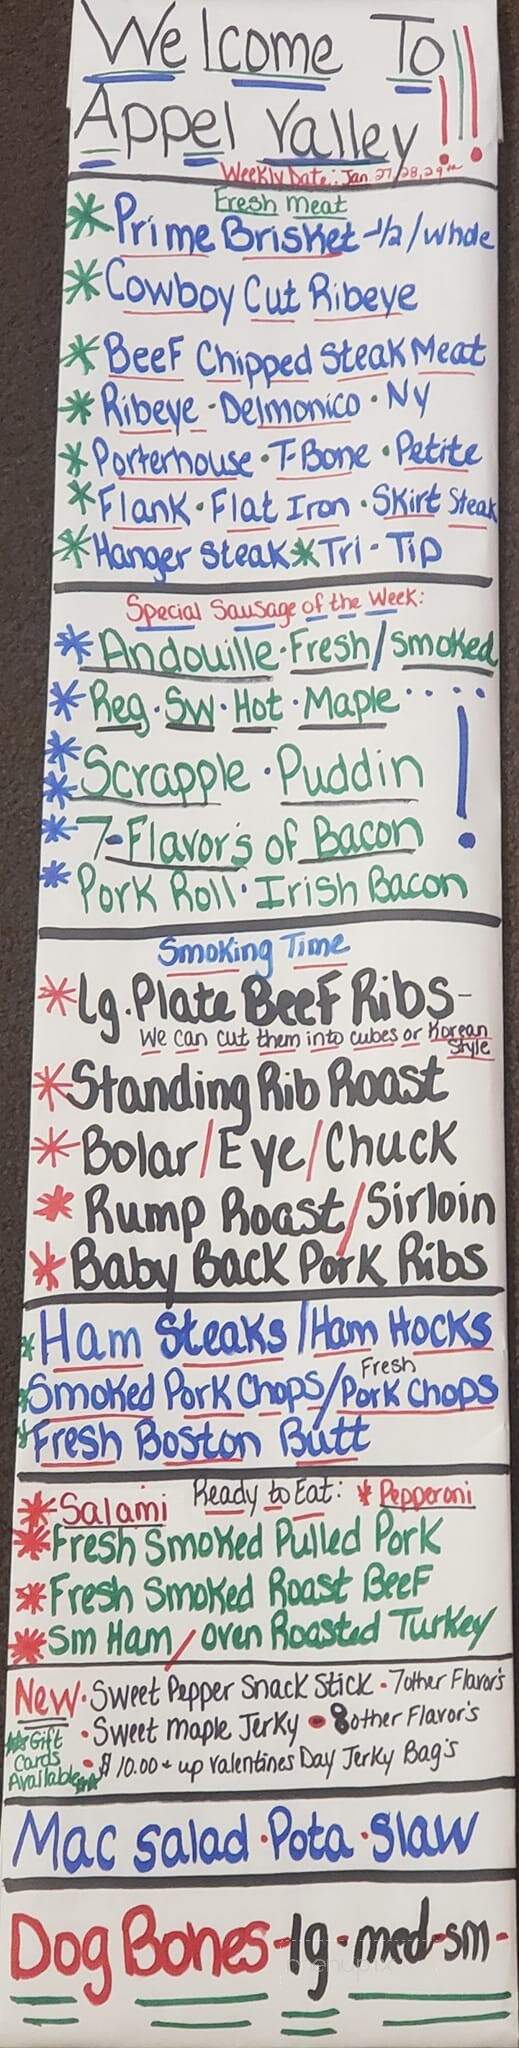 Welcome To
Appel Valley!!!
Weekly Date: Jan. 27, 28, 29th
Fresh Meat
* Prime Brisket - 1/2 / whole
* Cowboy Cut Ribeye
* Beef Chipped Steak Meat
* Ribeye - Delmonico · Ny
* Porterhouse · T-Bone · Petite
* Flank · Flat Iron · Skirt Steak
* Hanger Steak * Tri - Tip
Special Sausage of the Week:
* Andouille · Fresh / Smoked
* Reg · Sw · Hot · Maple ····!
* Scrapple · Puddin
* 7-Flavor's of Bacon
* Pork Roll · Irish Bacon
Smoking Time
* Lg. Plate Beef Ribs -
We can cut them into cubes or Korean Style
* Standing Rib Roast
* Bolar / Eye / Chuck
* Rump Roast / Sirloin
* Baby Back Pork Ribs
* Ham Steaks / Ham Hocks
* Smoked Pork Chops / Fresh Pork Chops
* Fresh Boston Butt
Ready to Eat:
* Salami * Pepperoni
* Fresh Smoked Pulled Pork
* Fresh Smoked Roast Beef
* Sm Ham / Oven Roasted Turkey
New · Sweet Pepper Snack Stick - 7 other Flavor's
· Sweet Maple Jerky · 8 other Flavor's
· $10.00 + up Valentines Day Jerky Bag's
** Gift Cards Available **
Mac Salad · Pota · Slaw
Dog Bones - lg - med - sm -